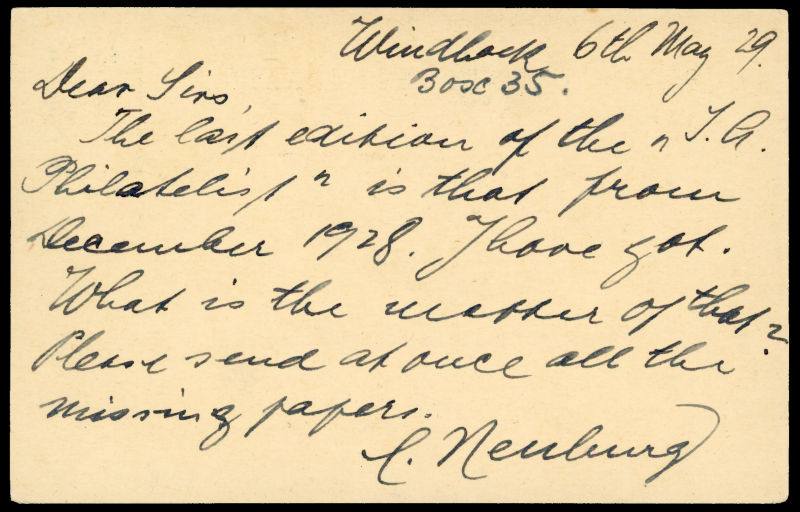 Windhoek, 6th May 29.
Box 35.
Dear Sirs,
The last edition of the "S.A.
Philatelist" is that from
December 1928. I have got.
What is the matter of that?
Please send at once all the
missing papers.
C. Neuburg